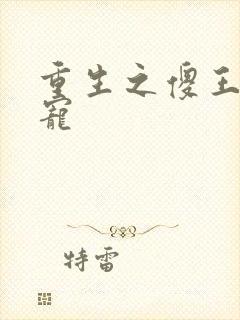 重生之傻王
寵
特雷